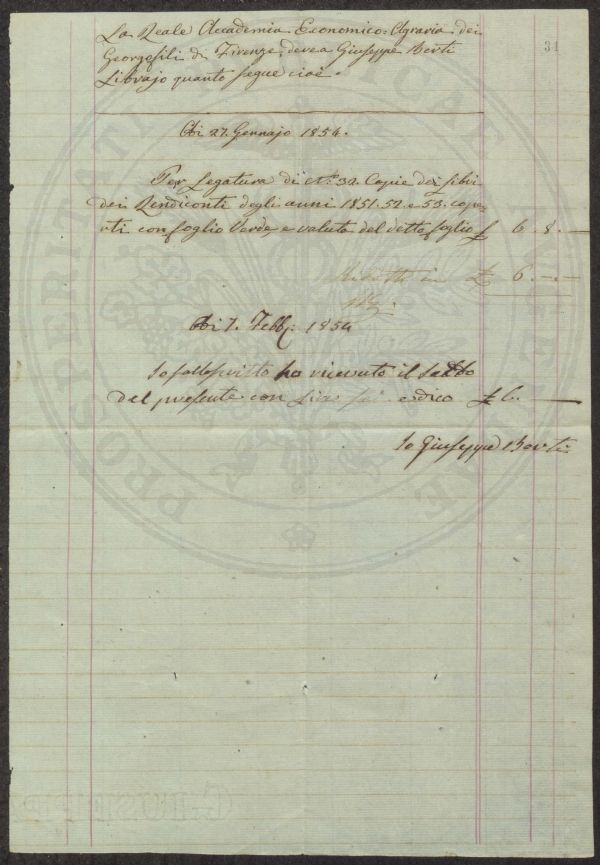 La Reale Accademia Economico=Agraria dei
31
Georgofili di Firenze, deve a Giuseppe Berti
Librajo quanto segue cioè.
Adi 27. Gennajo 1854.
Per Legatura di No. 32. Copie dei libri
dei Rendiconti degli anni 1851. 52. e 53. cope-
rti con foglio Verde e valuta del detto foglio £ 6. 8. —
Ridotto in £ 6. —. —
Adi 7. Febb: 1854
Io sottoscritto ho ricevuto il saldo
del presente con Lire sei e dico £ 6. —
Io Giuseppe Berti
PROSPERITATI PUBLICAE AUGENDAE